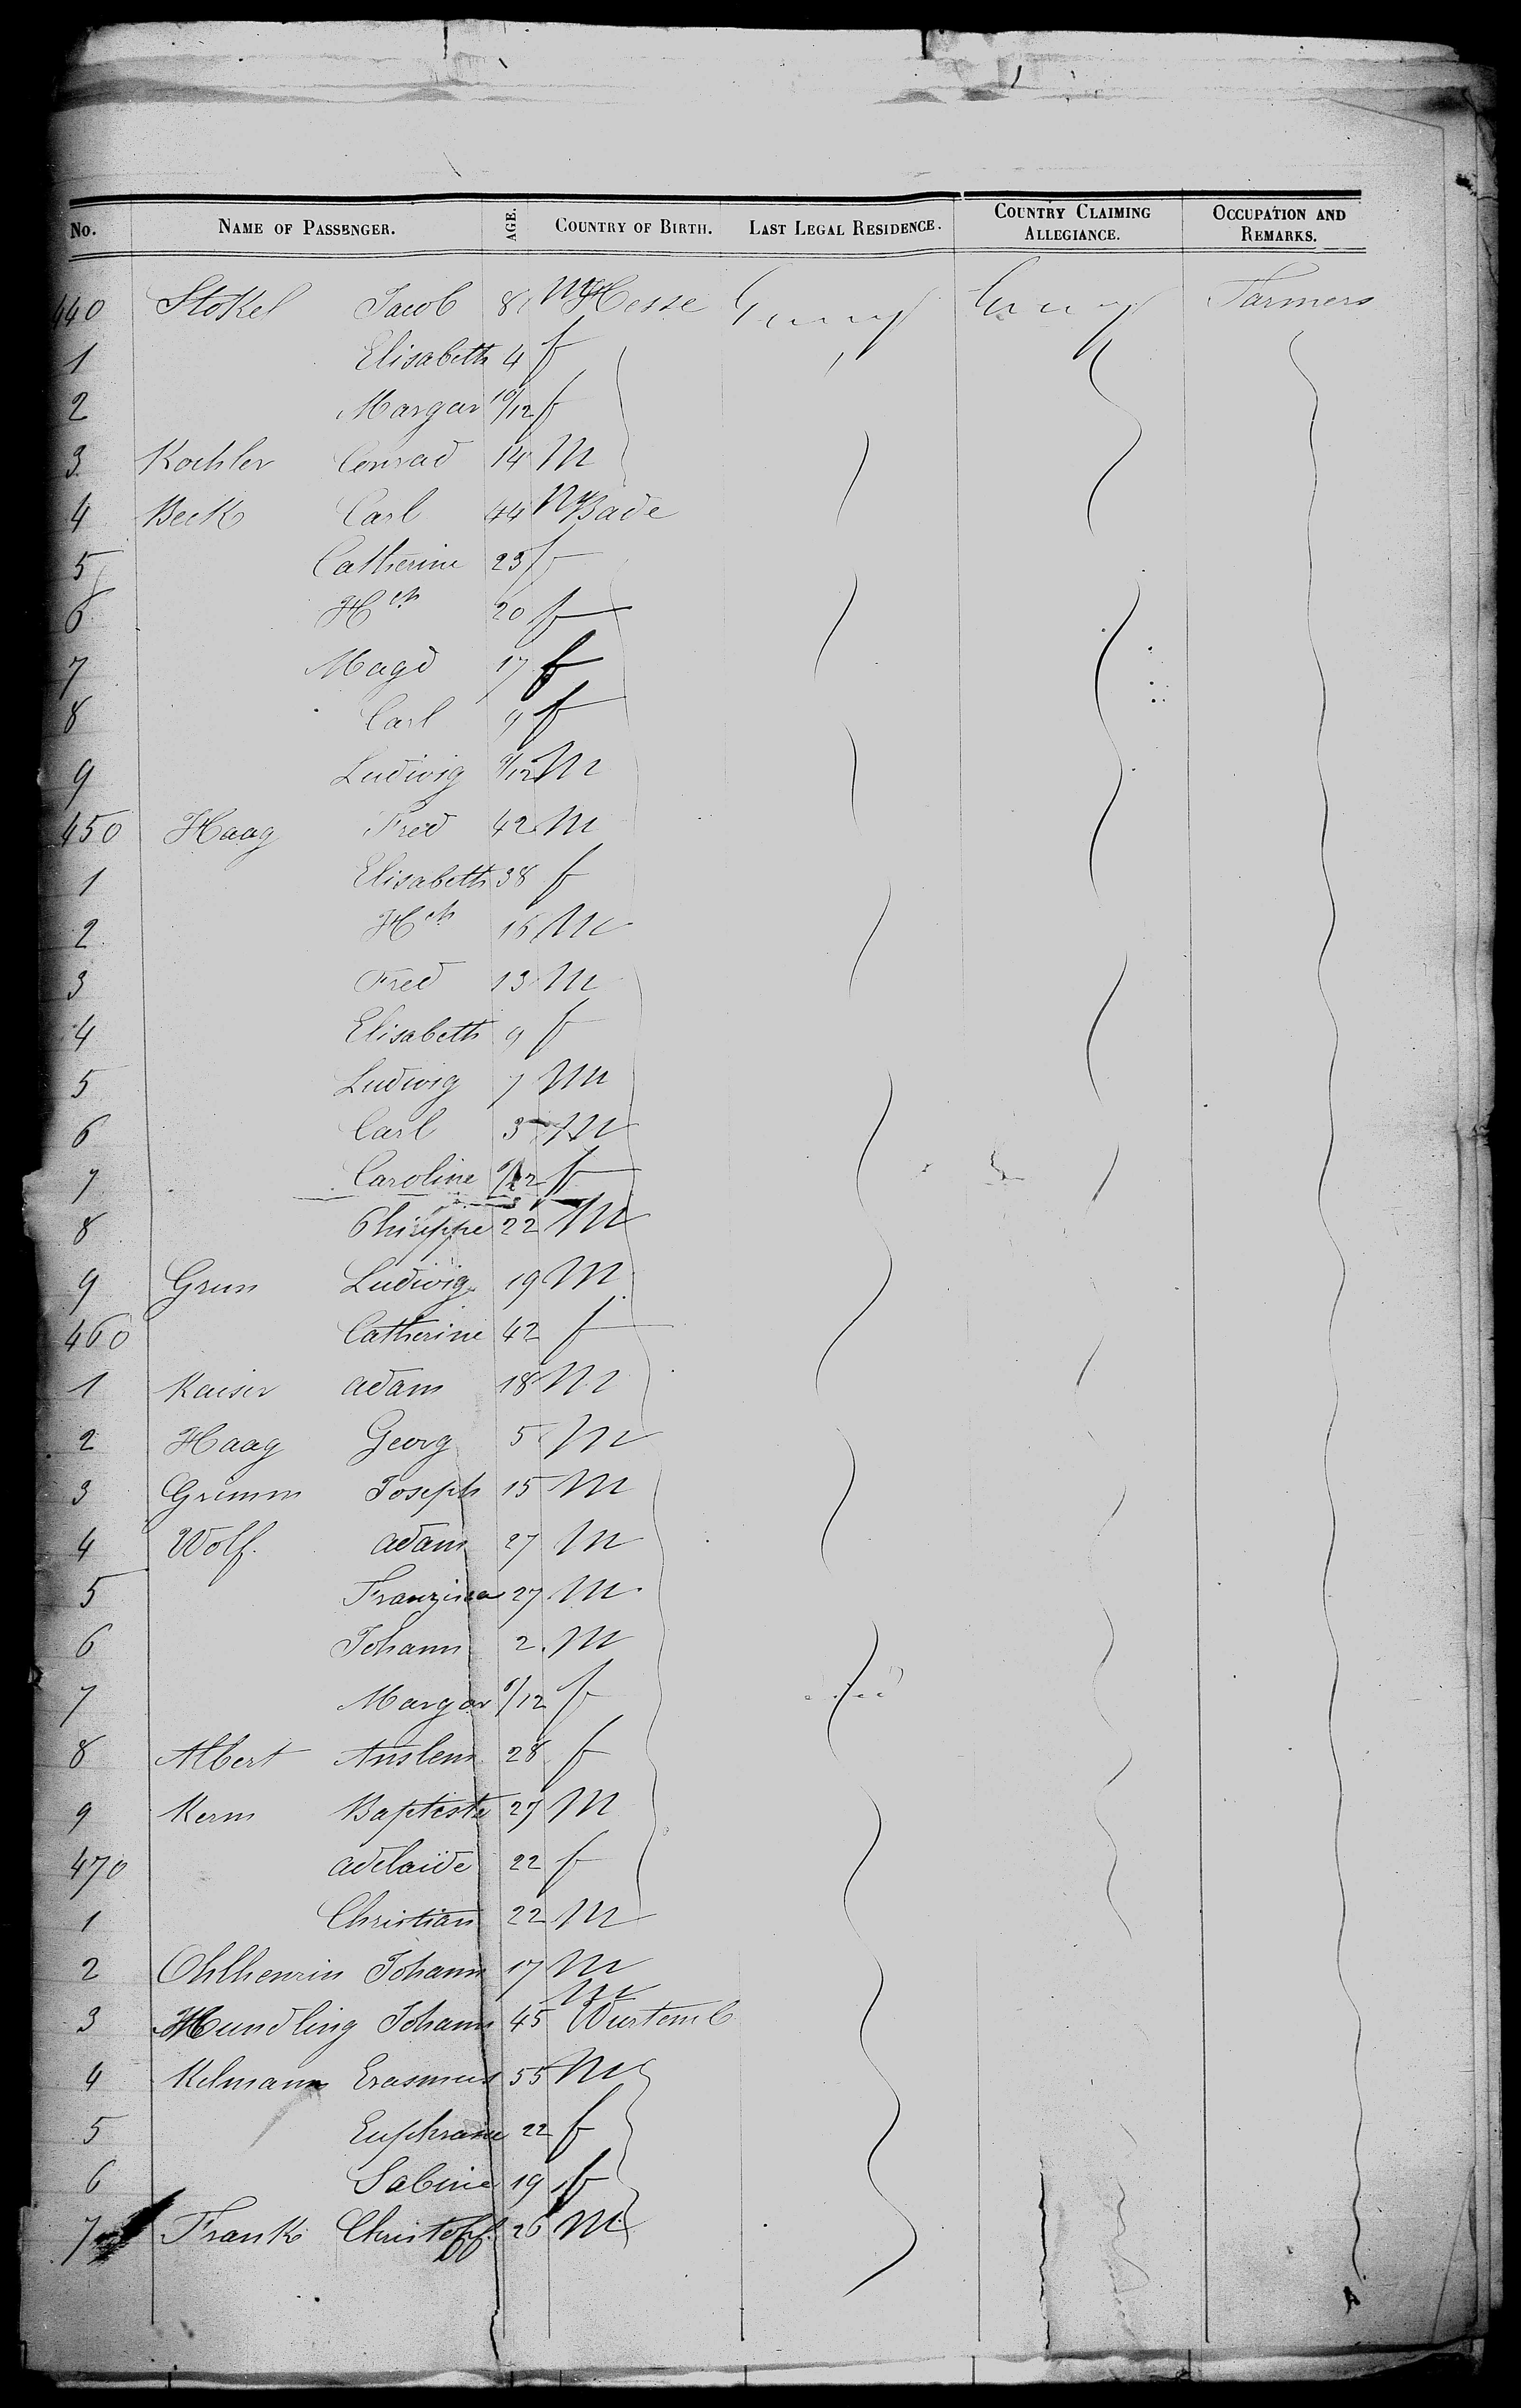 No. NAME OF PASSENGER. AGE. COUNTRY OF BIRTH. LAST LEGAL RESIDENCE. COUNTRY CLAIMING ALLEGIANCE. OCCUPATION AND REMARKS.
440 Stokel Jacob 8 M Hesse Germy Germy Farmers
1 Elisabeth 4 f
2 Margar 10/12 f
3 Koehler Conrad 14 M
4 Beck Carl 44 M Bade
5 Catherine 23 f
6 Hch 20 f
7 Magd 17 f
8 Carl 9 f
9 Ludwig 9/12 M
450 Haag Fred 42 M
1 Elisabeth 38 f
2 Hch 16 M
3 Fred 13 M
4 Elisabeth 9 f
5 Ludwig 7 M
6 Carl 3 M
7 Caroline 6/12 f
8 Philippe 22 M
9 Grun Ludwig 19 M
460 Catherine 42 f
1 Kaiser adam 18 M
2 Haag Georg 5 M
3 Grimm Joseph 15 M
4 Wolf. adam 27 M
5 Franzisca 27 M
6 Johann 2. M
7 Margar 6/12 f
8 Albert Anslem 28 f
9 Kerm Baptiste 27 M
470 adelaïde 22 f
1 Christian 22 M
2 Ohlhenrin Johann 17 M
3 Hundling Johann 45 M Wurtemb
4 Kelmann Erasmus 55 M
5 22 f
6 Sabine 19 f
7 Frank Christoph 26 M